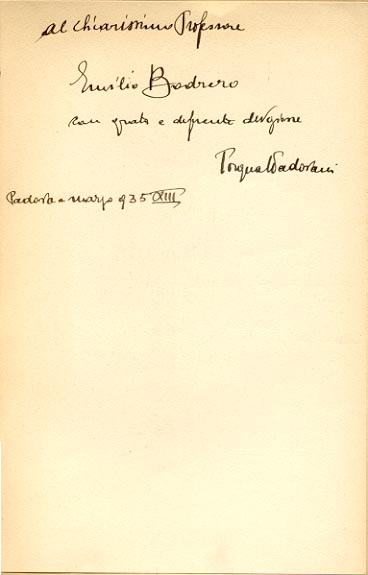 al chiarissimo Professore
Emilio Bodrero
con grata e deferente devozione
Padova - marzo 935 XIII